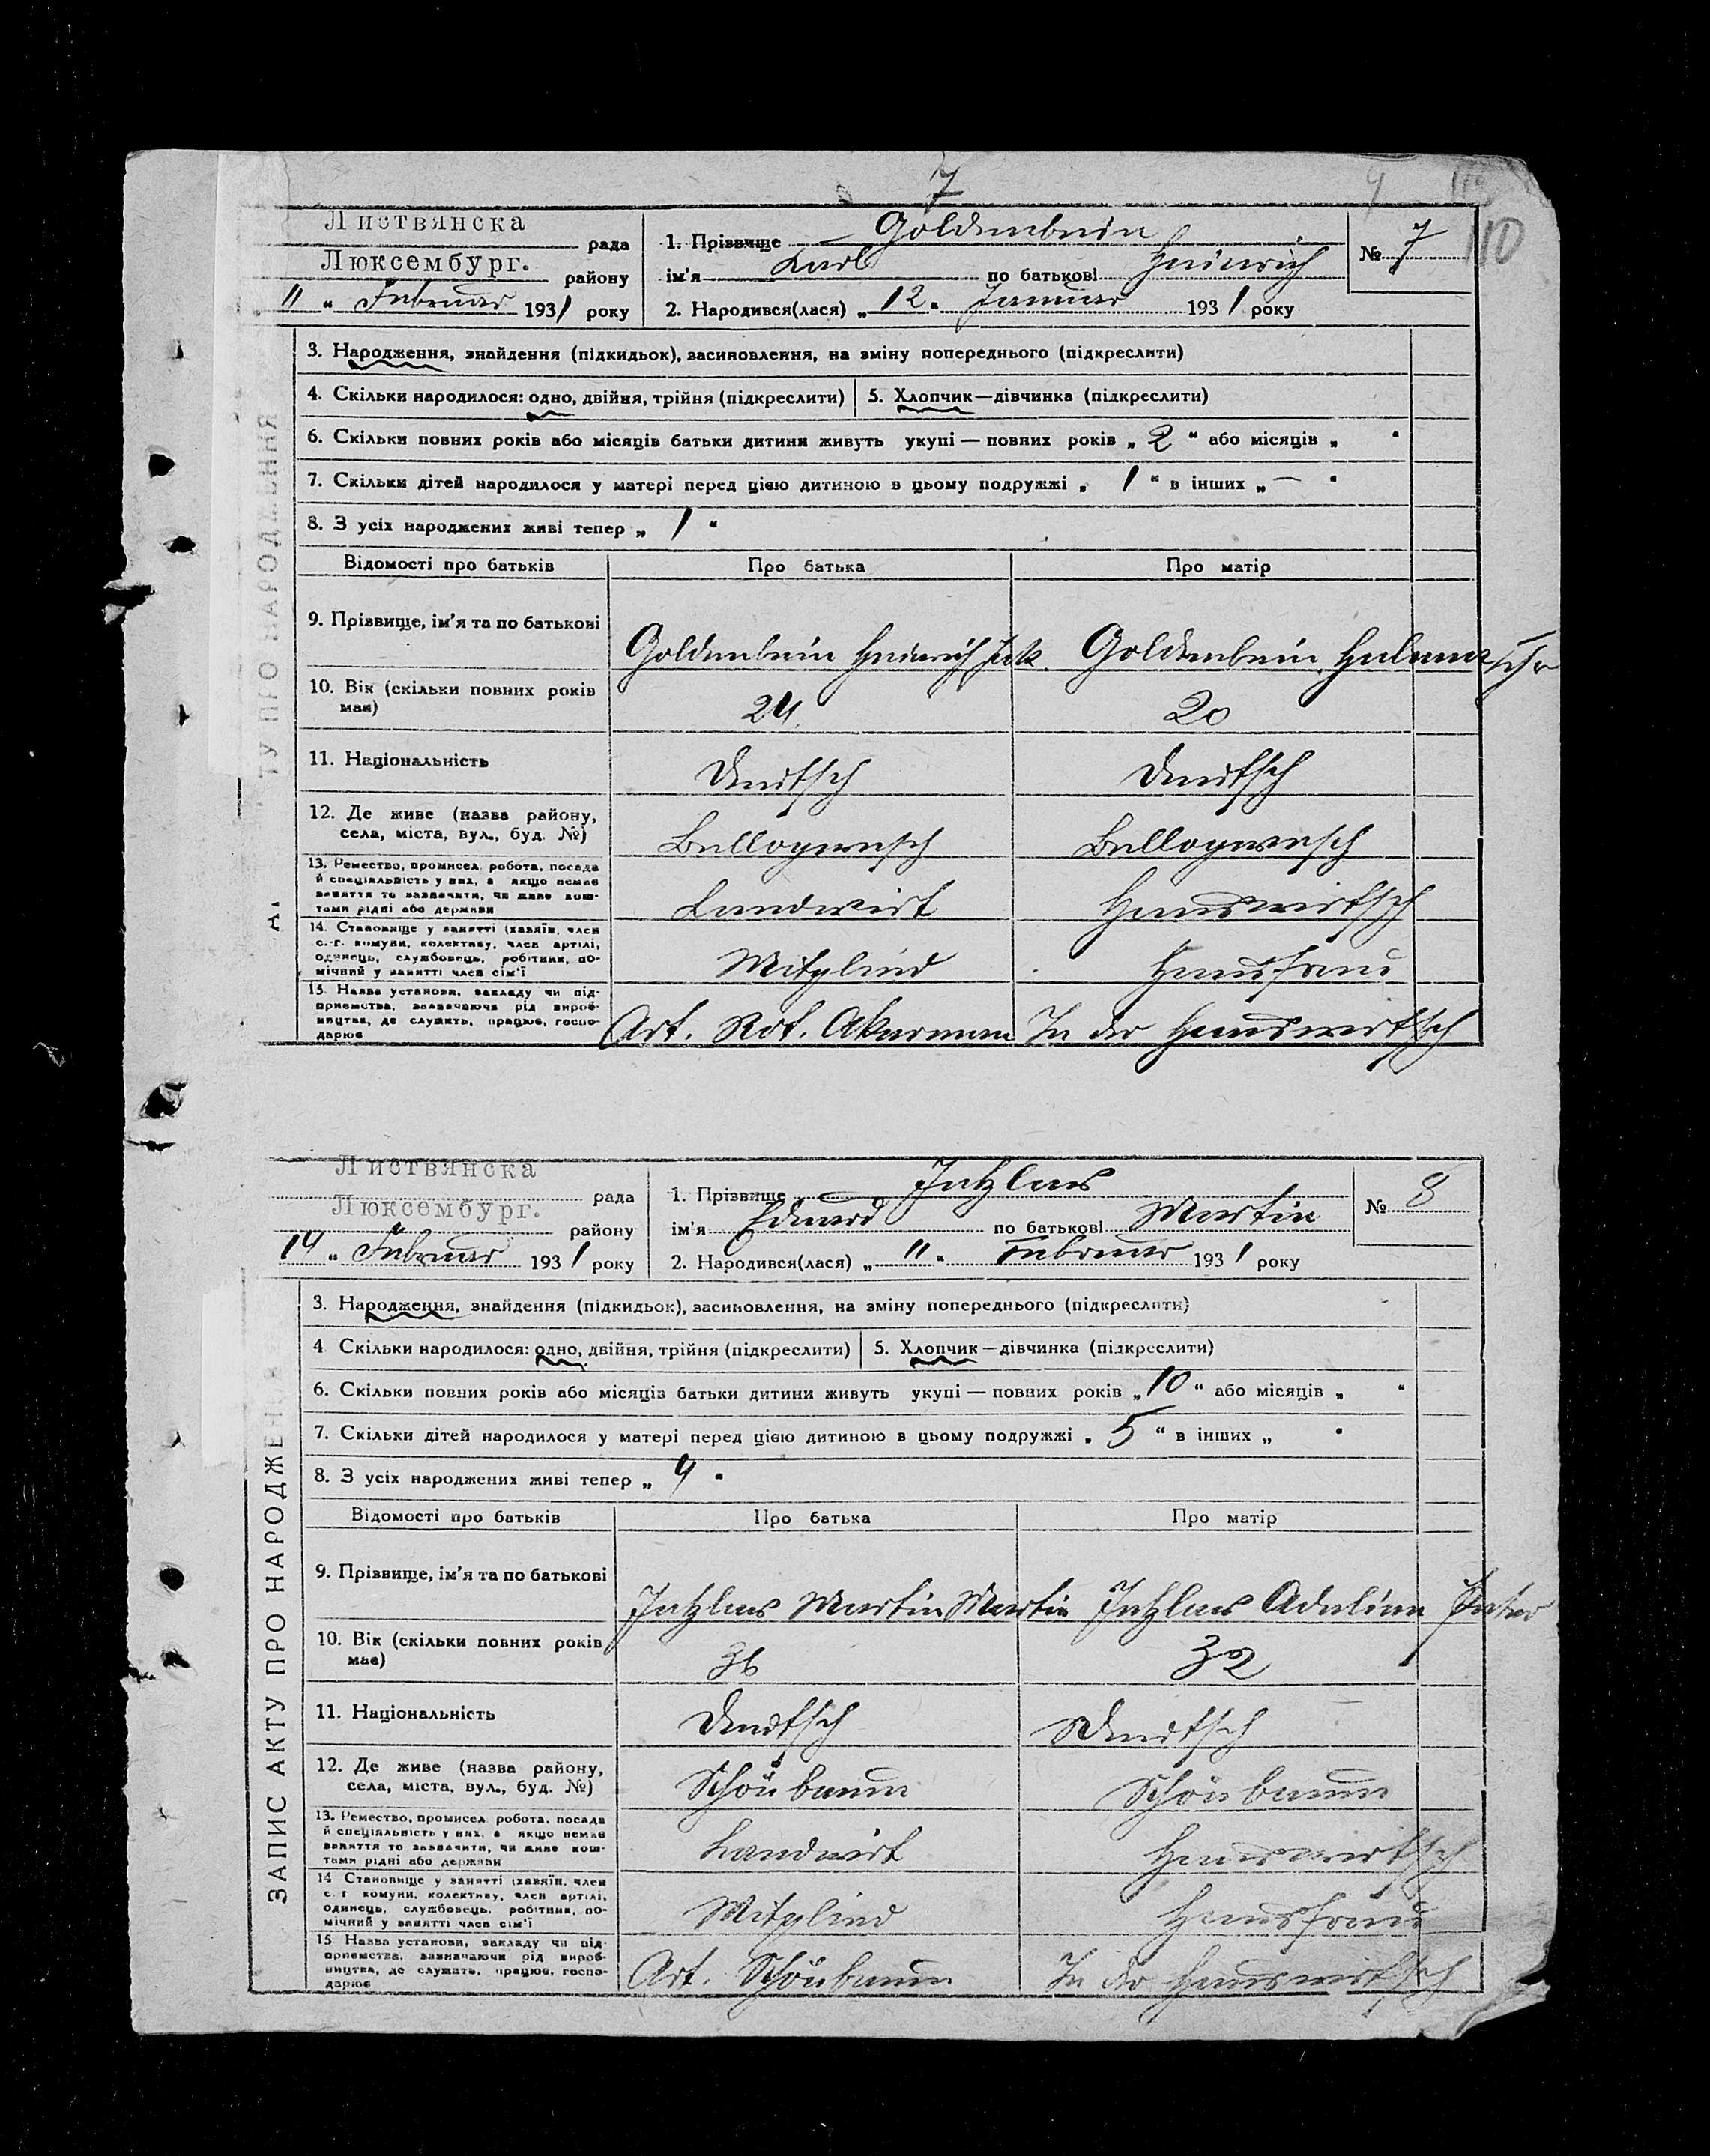 7
110
Листвянска рада
Люксембург. району
11 " Februar 1931 року
1. Прізвище Goldenbein
ім'я Karl по батькові Heinrich
2. Народився(лася) „ 12 " Januar 1931 року
№ 7
3. Народження, знайдення (підкидьок), засиновлення, на зміну попереднього (підкреслити)
4. Скільки народилося: одно, двійня, трійня (підкреслити) 5. Хлопчик—дівчинка (підкреслити)
6. Скільки повних років або місяців батьки дитини живуть укупі — повних років „ 2 " або місяців „ "
7. Скільки дітей народилося у матері перед цією дитиною в цьому подружжі „ 1 " в інших „ — "
8. З усіх народжених живі тепер „ 1 "
Відомості про батьків Про батька Про матір
9. Прізвище, ім'я та по батькові
Goldenbein Heinrich Jak. Goldenbein Helena
10. Вік (скільки повних років має) 24 20
11. Національність Deutsch Deutsch
12. Де живе (назва району, села, міста, вул., буд. №)
Bellogwesch Bellogwesch
13. Ремество, промисел, робота, посада
й спеціяльність у них, а якщо немає
заняття то зазначити, чи живе кош-
тами рідні або держави
Landwirt Hauswirtsch
14. Становище у занятті (хазяїн, член
с.-г. комуни, колективу, член артілі,
одинець, службовець, робітник, по-
мічний у занятті член сім'ї
Mitglied Hausfrau
15. Назва установи, закладу чи під-
приємства, зазначаючи рід вироб-
ництва, де служить, працює, госпо-
дарює
Art. Rot. Akerman In der Hauswirtsch
Листвянска рада
Люксембург. району
14 " Februar 1931 року
1. Прізвище Jetzlaus
ім'я Eduard по батькові Martin
2. Народився(лася) „ 11 " Februar 1931 року
№ 8
ЗАПИС АКТУ ПРО НАРОДЖЕННЯ
3. Народження, знайдення (підкидьок), засиновлення, на зміну попереднього (підкреслити)
4 Скільки народилося: одно, двійня, трійня (підкреслити) 5. Хлопчик—дівчинка (підкреслити)
6. Скільки повних років або місяців батьки дитини живуть укупі — повних років „ 10 " або місяців „ "
7. Скільки дітей народилося у матері перед цією дитиною в цьому подружжі „ 5 " в інших „ "
8. З усіх народжених живі тепер „ 4 "
Відомості про батьків Про батька Про матір
9. Прізвище, ім'я та по батькові
Jetzlaus Martin Martin Jetzlaus Adeline Peter
10. Вік (скільки повних років має) 36 32
11. Національність Deutsch Deutsch
12. Де живе (назва району, села, міста, вул., буд. №)
Schönbaum Schönbaum
13. Ремество, промисел, робота, посада
й спеціяльність у них, а якщо немає
заняття то зазначити, чи живе кош-
тами рідні або держави
Landwirt Hauswirtsch
14 Становище у занятті (хазяїн, член
с. г комуни, колективу, член артілі,
одинець, службовець, робітник, по-
мічний у занятті член сім'ї
Mitglied Hausfrau
15 Назва установи, закладу чи під-
приємства, зазначаючи рід вироб-
ництва, де служить, працює, госпо-
дарює
Art. Schönbaum In der Hauswirtsch